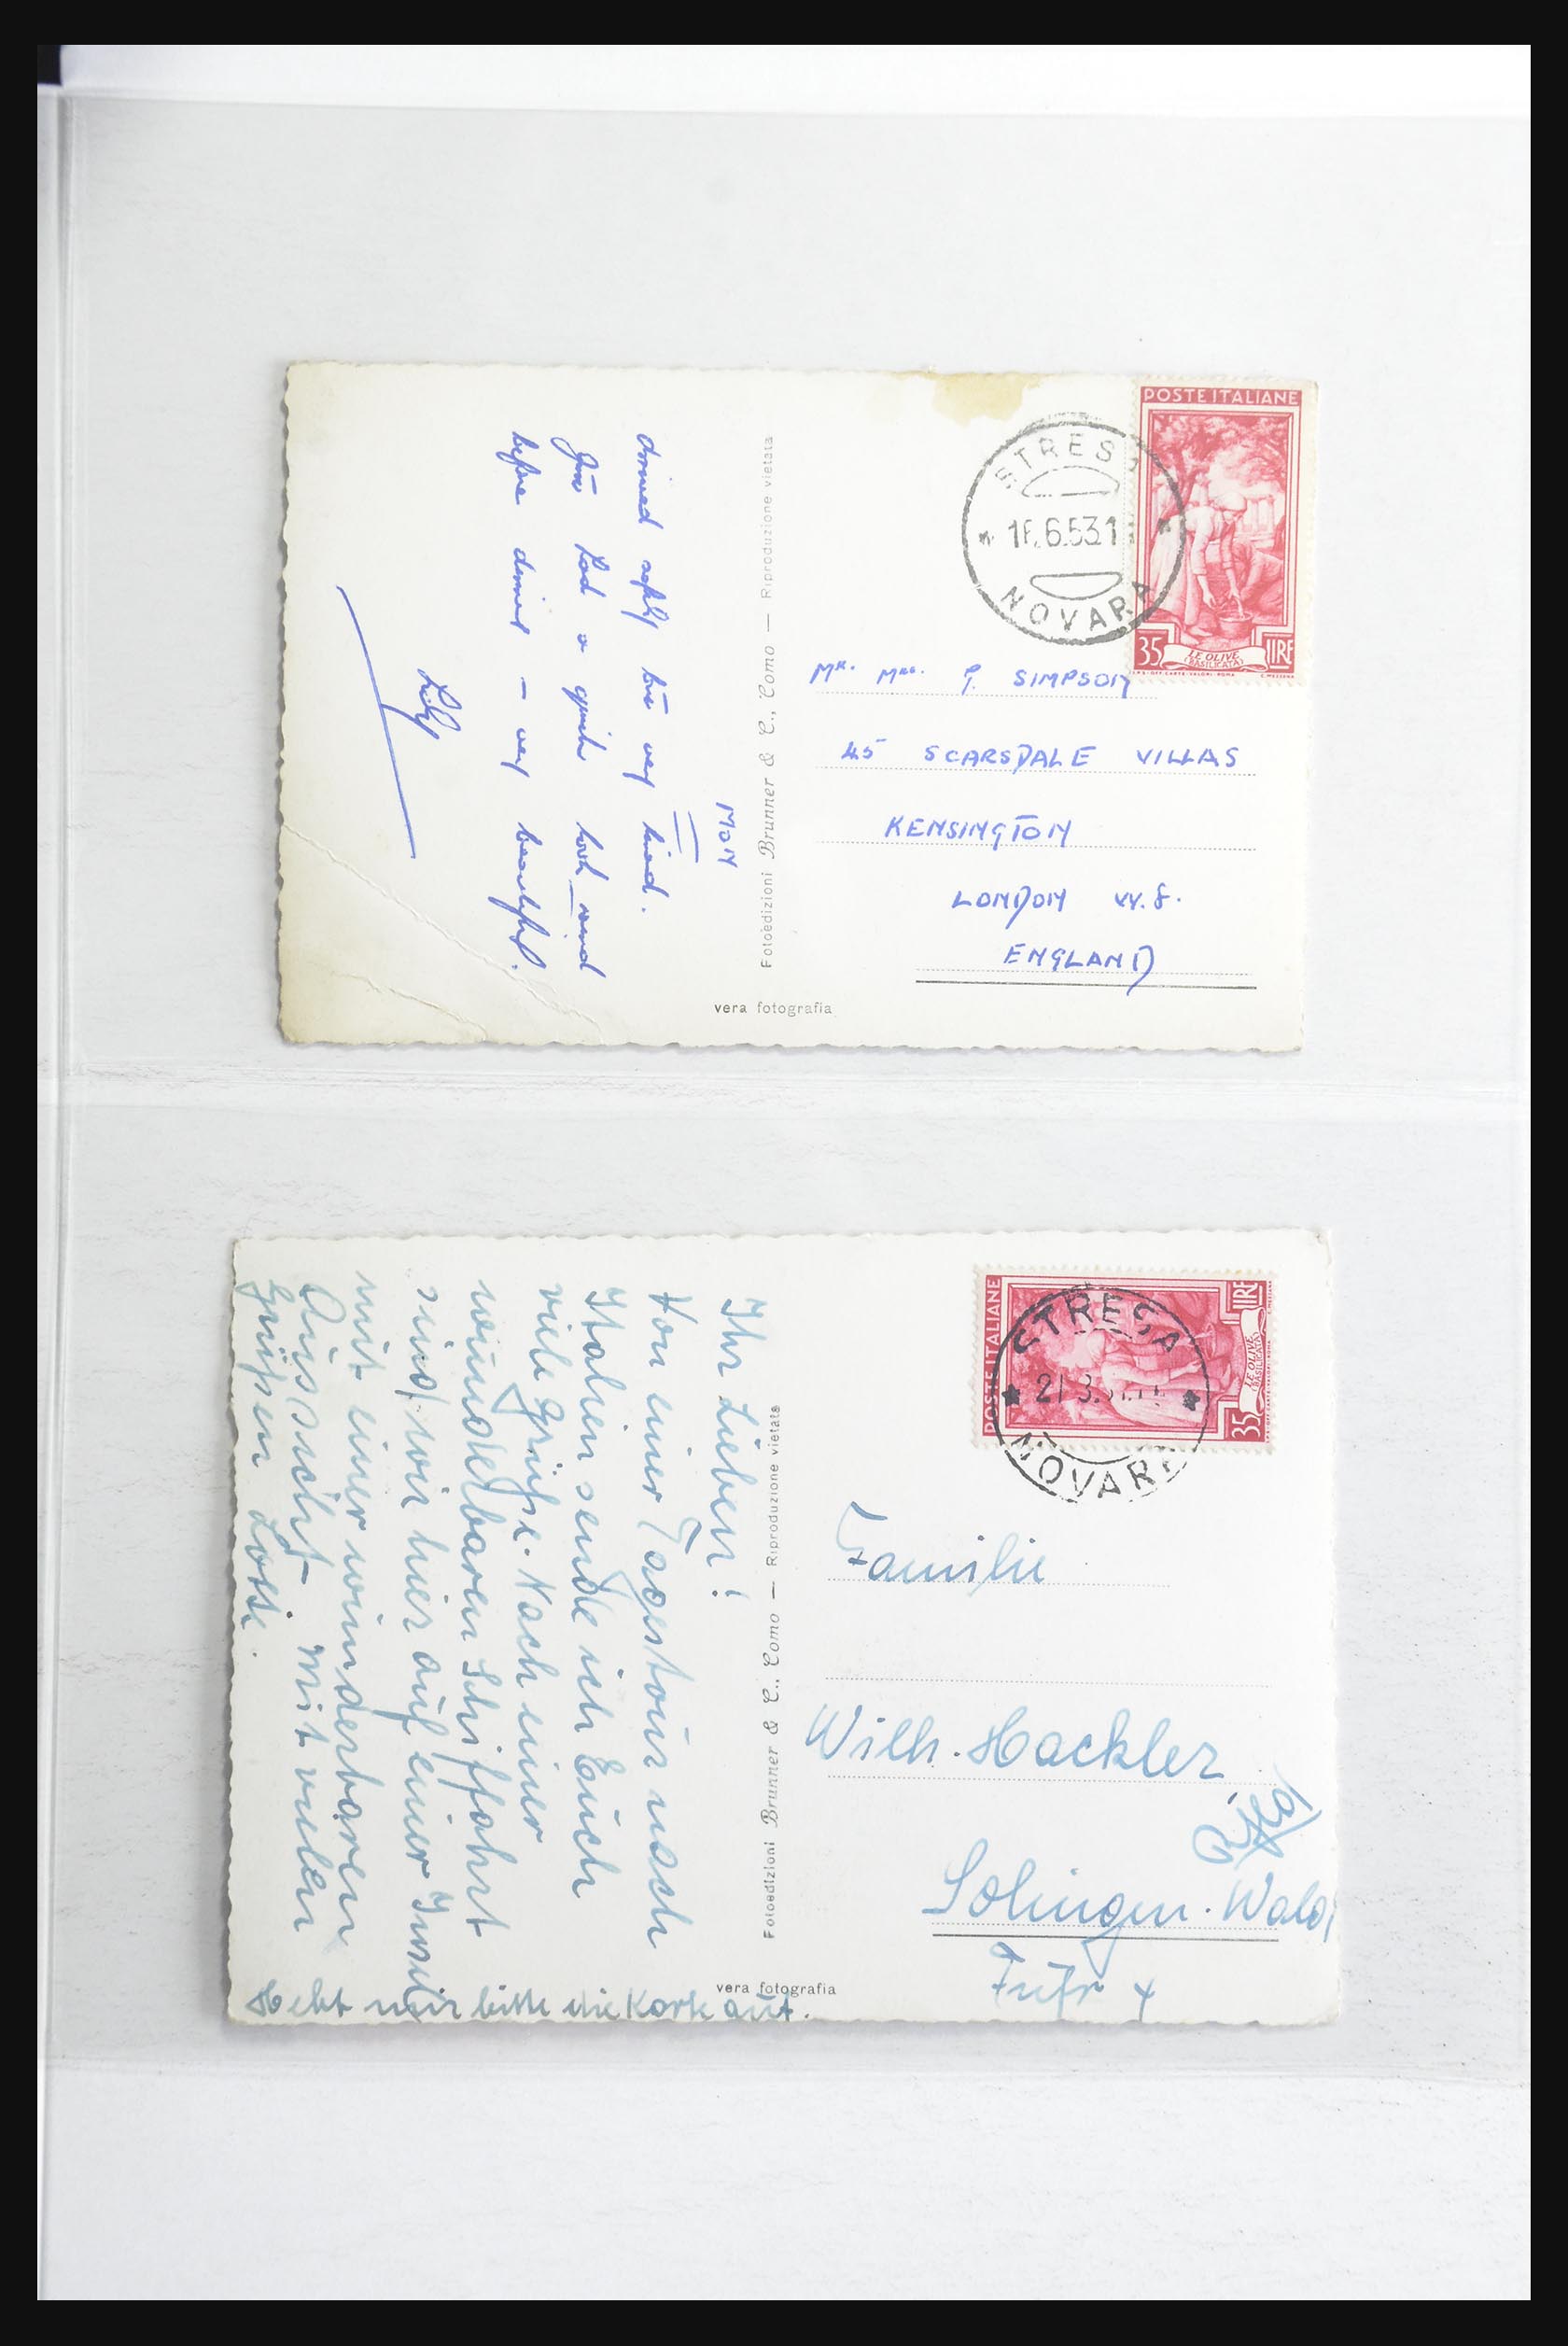 POSTE ITALIANE
STRESA
16.6.53.1
NOVARA
35 LIRE
LE OLIVE
(BASILICATA)
I.P.S.-OFF. CARTE-VALORI-ROMA
C. MEZZANA
MON
Arrived safely but very tired.
Just had a quick look round
before dinner – very beautiful.
Lily
Fotoedizioni Brunner & C., Como — Riproduzione vietata
Mr. Mrs. G. SIMPSON
45 SCARSDALE VILLAS
KENSINGTON
LONDON W.8.
ENGLAND
vera fotografia
POSTE ITALIANE
STRESA
21.3.
NOVARA
35 LIRE
LE OLIVE
(BASILICATA)
I.P.S.-OFF. CARTE-VALORI-ROMA
C. MEZZANA
Ihr Lieben!
Von einer Tagestour nach
Italien sende ich Euch
viele Grüße. Nach einer
wunderbaren Schiffahrt
sind wir hier auf einer Insel
mit einer wunderbaren
Aussicht. Mit vielen
Grüßen Lotte.
Hebt mir bitte die Karte auf.
Fotoedizioni Brunner & C., Como — Riproduzione vietata
Familie
Wilh. Hackler
Solingen-Wald
4
vera fotografia